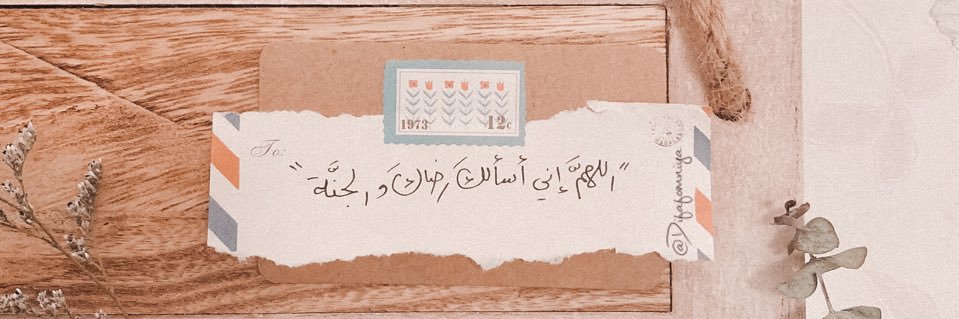 1973 12c
To:
"اللهمَّ إني أسألك رضاكَ و الجنَّة"
@Difafomniya